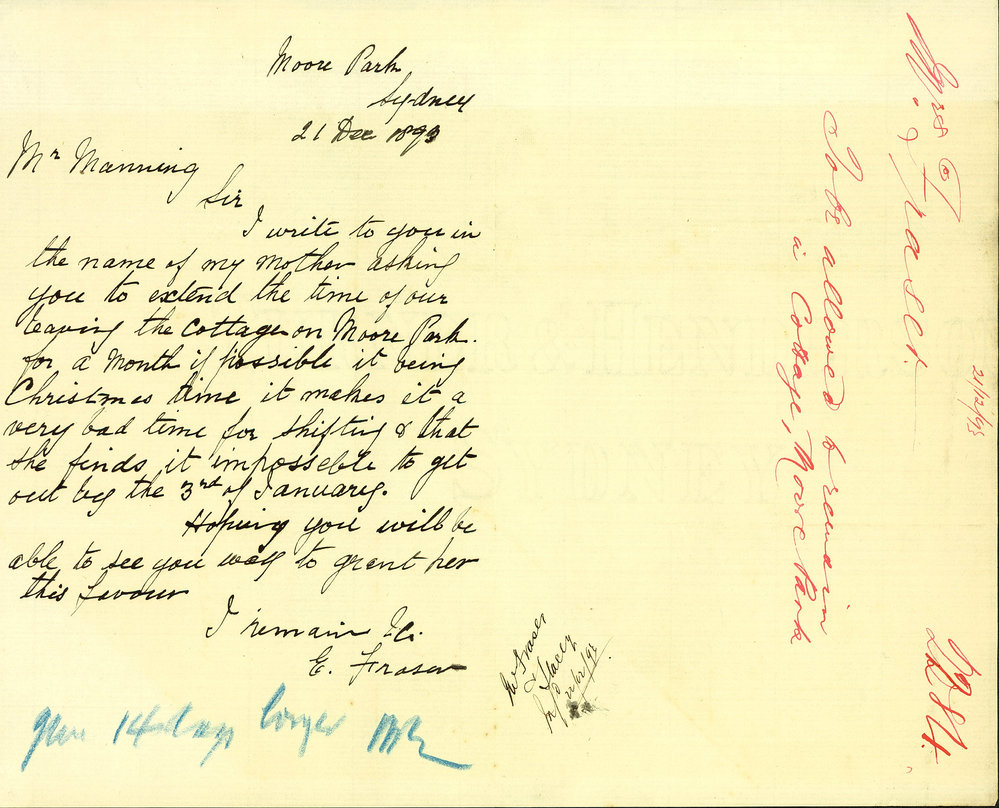 Moore Park
Sydney
21 Dec 1893
Mr Manning
Sir
I write to you in
the name of my mother asking
you to extend the time of our
leaving the Cottage on Moore Park
for a Month if possible it being
Christmas time it makes it a
very bad time for shifting & that
she finds it imposseble to get
out by the 3rd of January.
Hoping you will be
able to see you way to grant her
this favour
I remain &c.
E. Fraser
give 14 days longer
Mr Fraser
&
Stacey
22/12/93
Fraser
21/12/93
To be allowed to remain
in Cottage, Moore Park